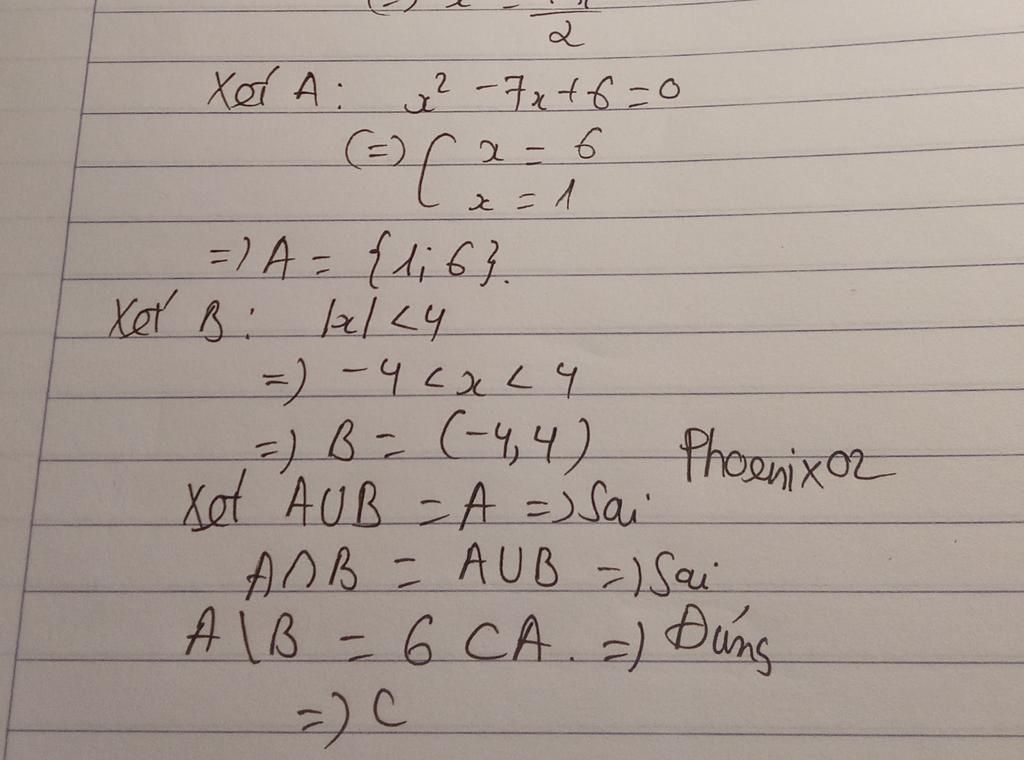 2
Xét A: x² - 7x + 6 = 0
(=) [ x = 6
x = 1
=) A = {1; 6}.
Xét B: |x| < 4
=) -4 < x < 4
=) B = (-4, 4)
Phoenix02
Xét A∪B = A =) Sai
A∩B = A∪B =) Sai
A\B = 6 ⊂ A. =) Đúng
=) C